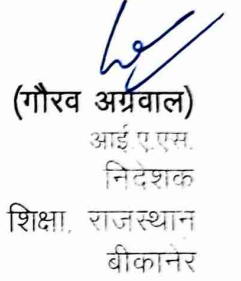 (गौरव अग्रवाल)
आई.ए.एस.
निदेशक
शिक्षा, राजस्थान
बीकानेर